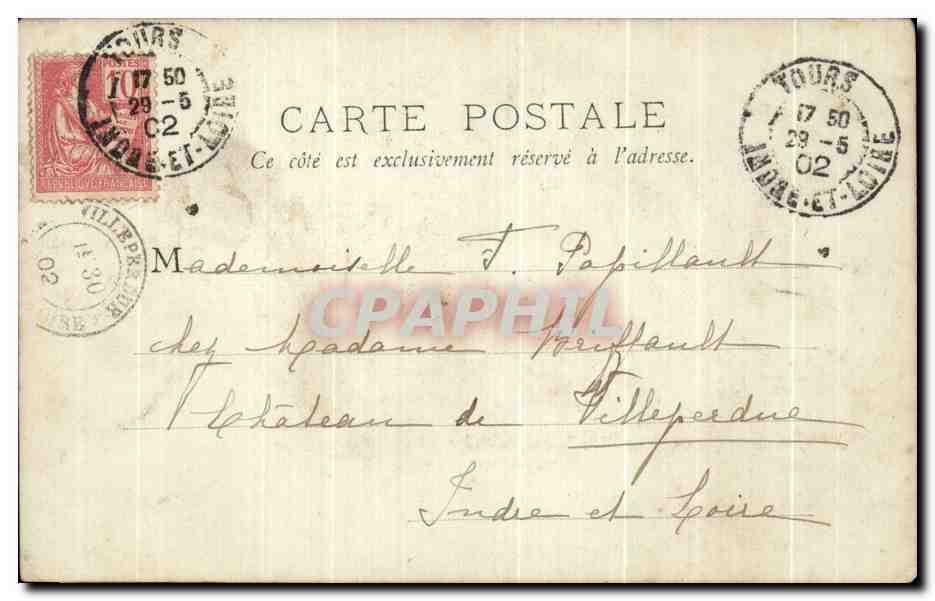 TOURS
17 50
29 - 5
02
INDRE-ET-LOIRE
POSTES
10
REPUBLIQUE FRANÇAISE
TOURS
17 50
29 - 5
02
INDRE-ET-LOIRE
CARTE POSTALE
Ce côté est exclusivement réservé à l'adresse.
VILLEPERDUE
30
02
Mademoiselle F. Papillault
CPAPHIL
chez Madame Briffault
Château de Villeperdue
Indre et Loire